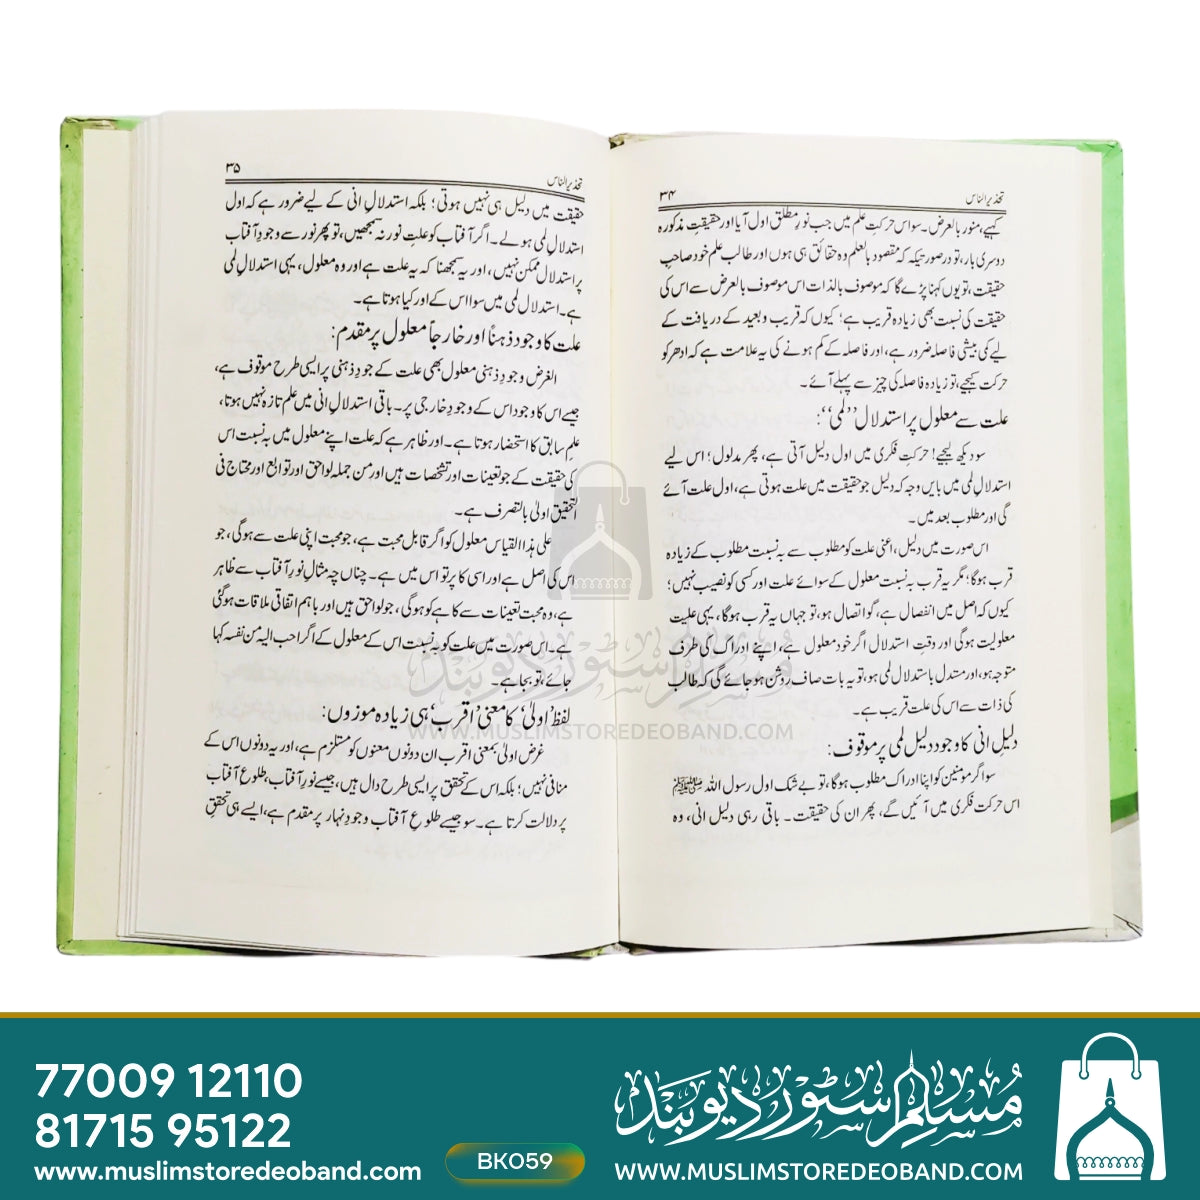 ۳۴ تحذیر الناس
کہیے، منور بالعرض۔ سو اس حرکت علم میں جب نورِ مطلق اول آیا اور حقیقتِ مذکورہ
دوسری بار، تو درصورتیکہ کہ مقصود بالعلم وہ حقائق ہی ہوں اور طالب علم خود صاحبِ
حقیقت، تو یوں کہنا پڑے گا کہ موصوف بالذات اس موصوف بالعرض سے اس کی
حقیقت کی نسبت بھی زیادہ قریب ہے؛ کیوں کہ قریب و بعید کے دریافت کے
لیے کمی بیشی فاصلہ ضرور ہے، اور فاصلہ کے کم ہونے کی یہ علامت ہے کہ ادھر کو
حرکت کیجیے، تو زیادہ فاصلہ کی چیز سے پہلے آئے۔
علت سے معلول پر استدلال ’’لمی‘‘:
سو دیکھ لیجیے! حرکتِ فکری میں اول دلیل آتی ہے، پھر مدلول؛ اس لیے
استدلالِ لمی میں بایں وجہ کہ دلیل جو حقیقت میں علت ہوتی ہے، اول علت آئے
گی اور مطلوب بعد میں۔
اس صورت میں دلیل، اعنی علت کو مطلوب سے بہ نسبت مطلوب کے زیادہ
قرب ہوگا؛ مگر یہ قرب بہ نسبت معلول کے سوائے علت اور کسی کو نصیب نہیں؛
کیوں کہ اصل میں انفصال ہے، گو اتصال ہو، تو جہاں یہ قرب ہوگا، یہی علیت
معلولیت ہوگی اور وقتِ استدلال اگر خود معلول ہے، اپنے ادراک کی طرف
متوجہ ہو، اور مستدل باستدلال لمی ہو، تو یہ بات صاف روشن ہوجائے گی کہ طالب
کی ذات سے اس کی علت قریب ہے۔
دلیلِ انی کا وجود دلیلِ لمی پر موقوف:
سو اگر مومنین کو اپنا ادراک مطلوب ہوگا، تو بے شک اول رسول اللہ ﷺ
اس حرکتِ فکری میں آئیں گے، پھر ان کی حقیقت۔ باقی رہی دلیل انی، وہ
۳۵ تحذیر الناس
حقیقت میں دلیل ہی نہیں ہوتی؛ بلکہ استدلالِ انی کے لیے ضرور ہے کہ اول
استدلالِ لمی ہولے۔ اگر آفتاب کو علتِ نور نہ سمجھیں، تو پھر نور سے وجودِ آفتاب
پر استدلال ممکن نہیں، اور یہ سمجھنا کہ یہ علت ہے اور وہ معلول، یہی استدلالِ لمی
ہے۔ استدلالِ لمی میں سوا اس کے اور کیا ہوتا ہے۔
علت کا وجود ذہناً اور خارجاً معلول پر مقدم:
الغرض وجودِ ذہنی معلول بھی علت کے وجودِ ذہنی پر ایسی طرح موقوف ہے،
جیسے اس کا وجود اس کے وجودِ خارجی پر۔ باقی استدلالِ انی میں علم تازہ نہیں ہوتا،
علمِ سابق کا استحضار ہوتا ہے۔ اور ظاہر ہے کہ علت اپنے معلول میں بہ نسبت اس
کی حقیقت کے جو تعینات اور تشخصات ہیں اور من جملہ لواحق اور توابع اور محتاج فی
التحقیق اولیٰ بالتصرف ہے۔
علی ہذا القیاس معلول کو اگر قابل محبت ہے، جو محبت اپنی علت سے ہوگی، جو
اس کی اصل ہے اور اسی کا پرتو اس میں ہے۔ چناں چہ مثالِ نورِ آفتاب سے ظاہر
ہے، وہ محبت تعینات سے کاہے کو ہوگی، جو لواحق ہیں اور باہم اتفاقی ملاقات ہوگئی
ہے۔ اس صورت میں علت کو بہ نسبت اس کے معلول کے اگر احب الیہ من نفسہ کہا
جائے، تو بجا ہے۔
لفظ ’اولیٰ‘ کا معنی ’اقرب‘ ہی زیادہ موزوں:
غرض اولیٰ بمعنی اقرب ان دونوں معنوں کو مستلزم ہے، اور یہ دونوں اس کے
منافی نہیں؛ بلکہ اس کے تحقق پر ایسی طرح دال ہیں، جیسے نورِ آفتاب، طلوعِ آفتاب
پر دلالت کرتا ہے۔ سو جیسے طلوعِ آفتاب وجودِ نہار پر مقدم ہے، ایسے ہی تحققِ
مُسلم سٹور دیوبند
WWW.MUSLIMSTOREDEOBAND.COM
77009 12110
81715 95122
www.muslimstoredeoband.com
BK059
مُسلم سٹور دیوبند
WWW.MUSLIMSTOREDEOBAND.COM